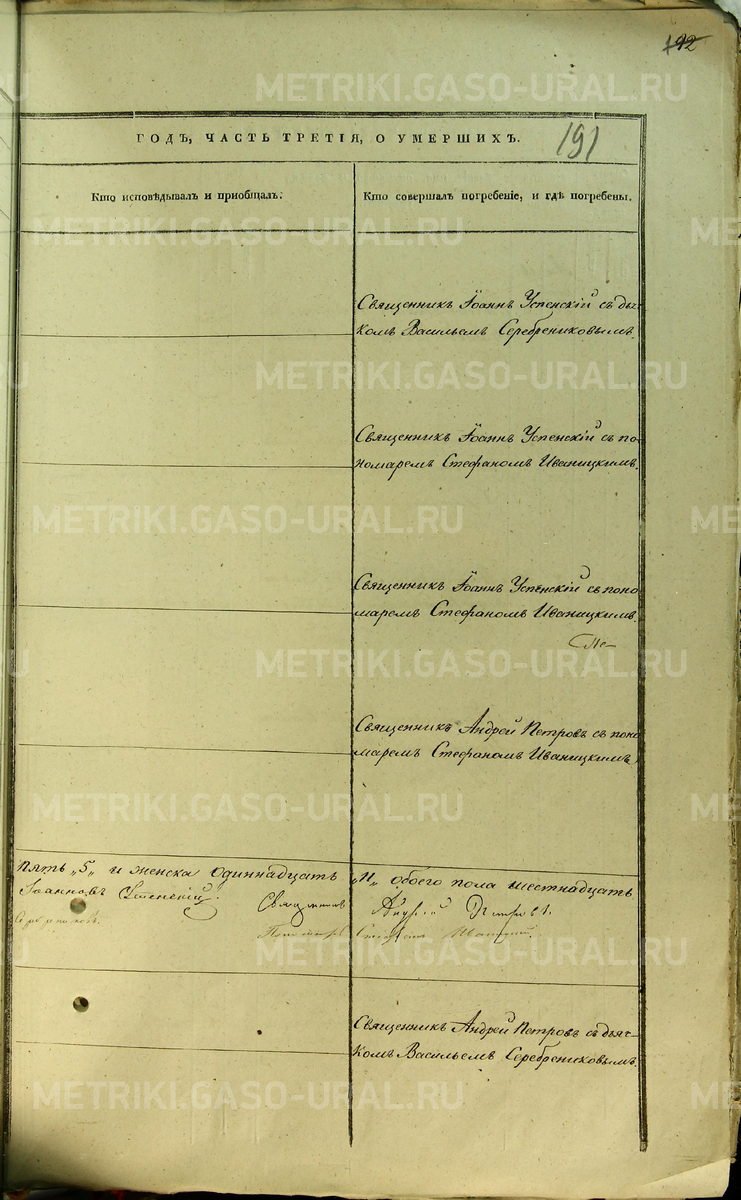 192
METRIKI.GASO-URAL.RU
191
ГОДЪ, ЧАСТЬ ТРЕТІЯ, О УМЕРШИХЪ.
Кто исповѣдывалъ и пріобщалъ.
Кто совершалъ погребеніе, и гдѣ погребены.
Священникъ Іоаннъ Успенскій съ дья-
комъ Васильемъ Серебрениковымъ.
Священникъ Іоаннъ Успенскій съ по-
номаремъ Стефаномъ Иваницкимъ.
Священникъ Іоаннъ Успенскій съ поно
маремъ Стефаномъ Иваницкимъ.
Священникъ Андрей Петровъ съ поно
маремъ Стефаномъ Иваницкимъ.
Пять „5„ и женска одиннадцать „11„ обоего пола шестнадцать
Іоаннъ Успенскій. Священникъ Андрей Петровъ.
Пономарь Стефанъ Иваницкій.
Священникъ Андрей Петровъ съ дьяч-
комъ Васильемъ Серебрениковымъ.